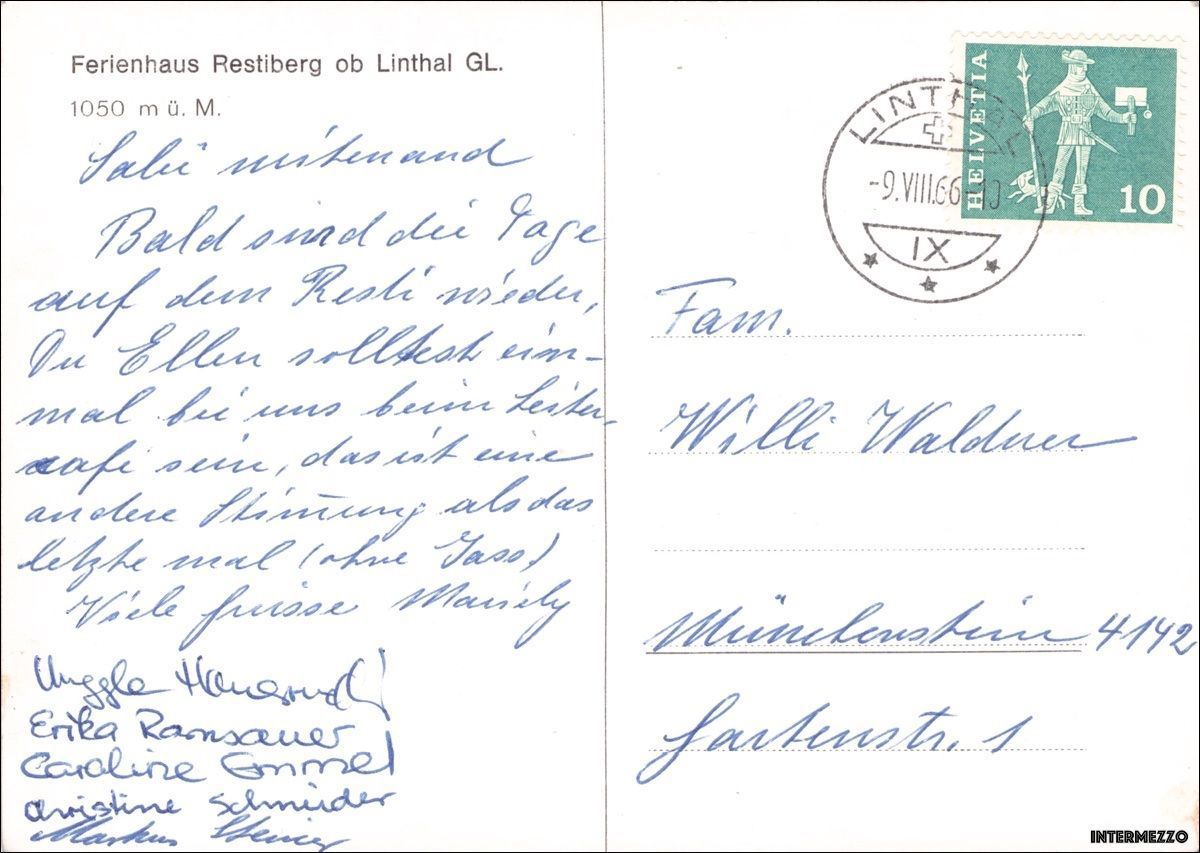 Ferienhaus Restiberg ob Linthal GL.
1050 m ü. M.
Salü mitenand
Bald sind die Tage
auf dem Resti wieder,
Du Ellen solltest ein-
mal bei uns beim Leiter-
cafi sein, das ist eine
andere Stimung als das
letzte mal (ohne Jass)
Viele grüsse Mariely
Unggle
Erika Ramsauer
Caroline Emmel
Christine Schneider
Markus
HELVETIA
10
LINTHAL
-9.VIII.66-10
IX
Fam.
Willi Waldner
Münchenstein 4142
Gartenstr. 1
INTERMEZZO